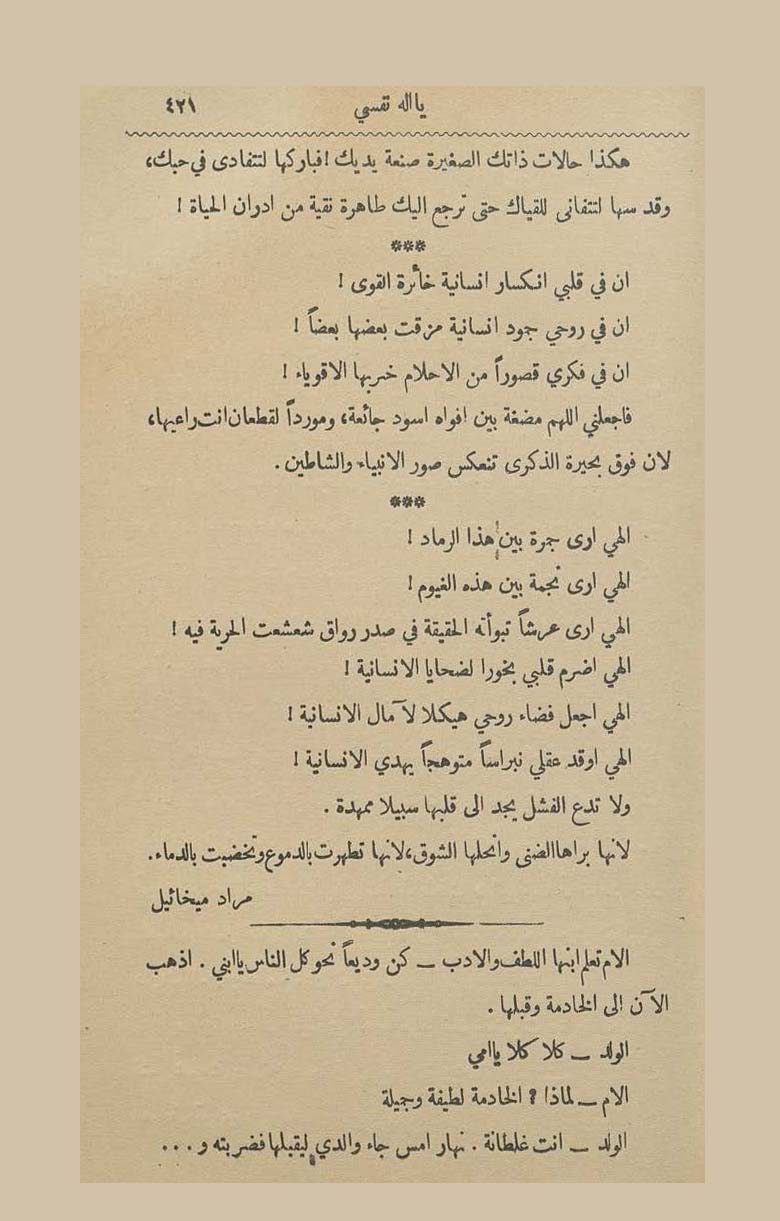 يا اله نفسي ٤٢١
هكذا حالات ذاتك الصغيرة صنعة يديك ! فباركها لتتفادى في حبك،
وقد سها لتتفانى للقياك حتى ترجع اليك طاهرة نقية من ادران الحياة !
***
ان في قلبي انكسار انسانية خائرة القوى !
ان في روحي جمود انسانية مزقت بعضها بعضاً !
ان في فكري قصوراً من الاحلام خربها الاقوياء !
فاجعلني اللهم مضغة بين افواه اسود جائعة، ومورداً لقطعان انت راعيها،
لان فوق بحيرة الذكرى تنعكس صور الانبياء والشاطين .
***
الهي ارى جمرة بين هذا الرماد !
الهي ارى نجمة بين هذه الغيوم !
الهي ارى عرشاً تبوأته الحقيقة في صدر رواق شعشعت الحرية فيه !
الهي اضرم قلبي بخورا لضحايا الانسانية !
الهي اجعل فضاء روحي هيكلا لآمال الانسانية !
الهي اوقد عقلي نبراساً متوهجاً يهدي الانسانية !
ولا تدع الفشل يجد الى قلبها سبيلا ممهدة .
لانها براها الضنى وانحلها الشوق، لانها تطهرت بالدموع وتخضبت بالدماء .
مراد ميخائيل
الام تعلم ابنها اللطف والادب — كن وديعاً نحو كل الناس يا ابني . اذهب
الآن الى الخادمة وقبلها .
الولد — كلا كلا يا امي
الام — لماذا ؟ الخادمة لطيفة وجميلة
الولد — انت غلطانة . نهار امس جاء والدي ليقبلها فضربته و ...